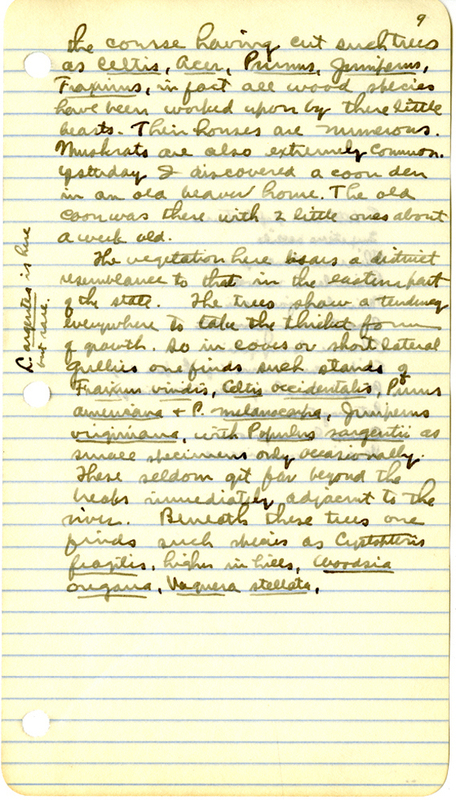 9
the course having cut such trees
as Celtis, Acer, Prunus, Juniperus,
Fraxinus, in fact all wood species
have been worked upon by these little
beasts. Their houses are numerous.
Muskrats are also extremely common.
Yesterday I discovered a coon den
in an old beaver home. The old
coon was there with 2 little ones about
a week old.
The vegetation here bears a distinct
resemblance to that in the eastern part
of the state. The trees show a tendency
everywhere to take the thicket form
of growth. So in coves or short lateral
gullies one finds such stands of
Fraxinus viridis, Celtis occidentalis, Prunus
americana + P. melanocarpa, Juniperus
virginiana, with Populus sargentii as
small specimens only occasionally.
These seldom get far beyond the
breaks immediately adjacent to the
river. Beneath these trees one
finds such species as Cystopteris
fragilis, higher in hills, Woodsia
oregana, Vagnera stellata,
L. argentea is here
but rare.